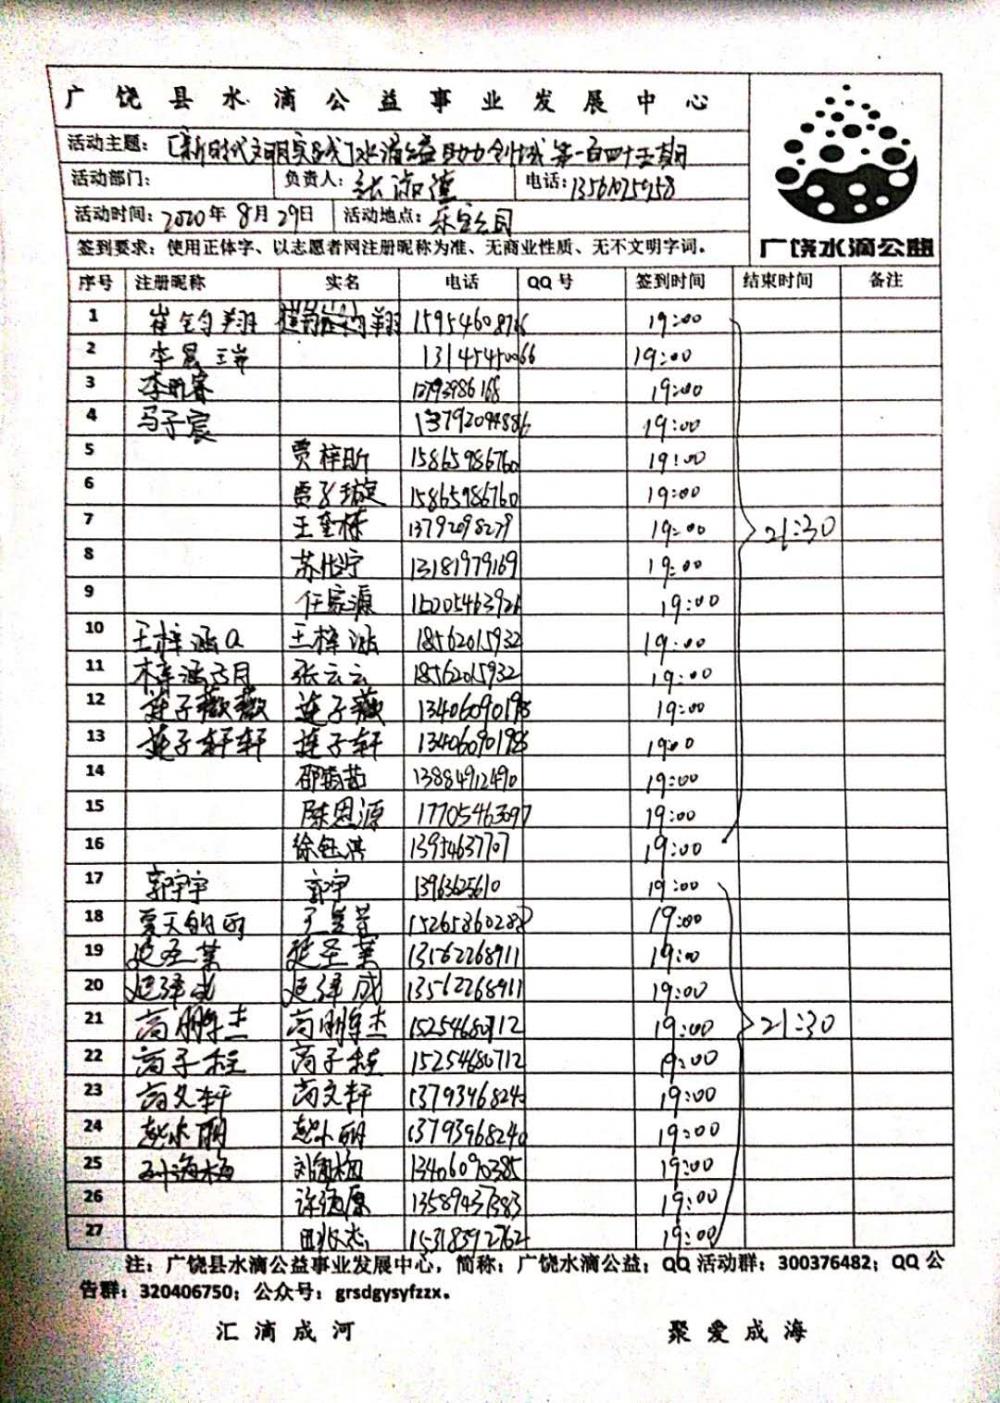 广饶县水滴公益事业发展中心
活动主题：【新时代文明实践】水滴公益助力创城第一百四十五期
活动部门： 负责人：张淑莲 电话：13561025958
活动时间：2020年8月29日 活动地点：乐安公园
签到要求：使用正体字、以志愿者网注册昵称为准、无商业性质、无不文明字词。
广饶水滴公益
序号 注册昵称 实名 电话 QQ号 签到时间 结束时间 备注
1 崔钧翔 崔钧翔 19:00
2 李晨瑞 13145450066 19:00
3 李昕睿 13793986168 19:00
4 马子宸 13792094886 19:00
5 贾梓昕 15865986760 19:00
6 贾子璇 15865986760 19:00
7 王奎栋 13792098279 19:00 21:30
8 苏怡宁 13181979169 19:00
9 任家源 15205463926 19:00
10 王梓涵a 王梓涵 18562015932 19:00
11 梓涵子月 张云云 18562015932 19:00
12 莲子薇薇 莲子薇 13406090198 19:00
13 莲子轩轩 莲子轩 13406090198 19:00
14 13884912490 19:00
15 陈恩源 17705463097 19:00
16 徐钰淇 13954637707 19:00
17 郭宇宇 郭宇 1396325610 19:00
18 夏天的雨 15265860288 19:00
19 延圣菓 延圣菓 13562268911 19:00
20 延泽成 延泽成 13562268911 19:00
21 高鹏杰 高鹏杰 15254680712 19:00 21:30
22 高子桓 高子桓 15254680712 19:00
23 尚文轩 尚文轩 13793968240 19:00
24 赵冰丽 赵冰丽 13793968240 19:00
25 刘海梅 刘海梅 13406090385 19:00
26 许海原 13589437383 19:00
27 15318392762 19:00
注：广饶县水滴公益事业发展中心，简称：广饶水滴公益；QQ活动群：300376482；QQ公
告群：320406750；公众号：grsdgysyfzzx。
汇滴成河 聚爱成海